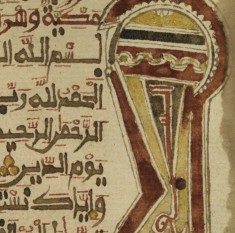 مكية وهي
بسم الله ال
الحمد لله رب
الرحمن الرحيم
يوم الدين
وإياك نست